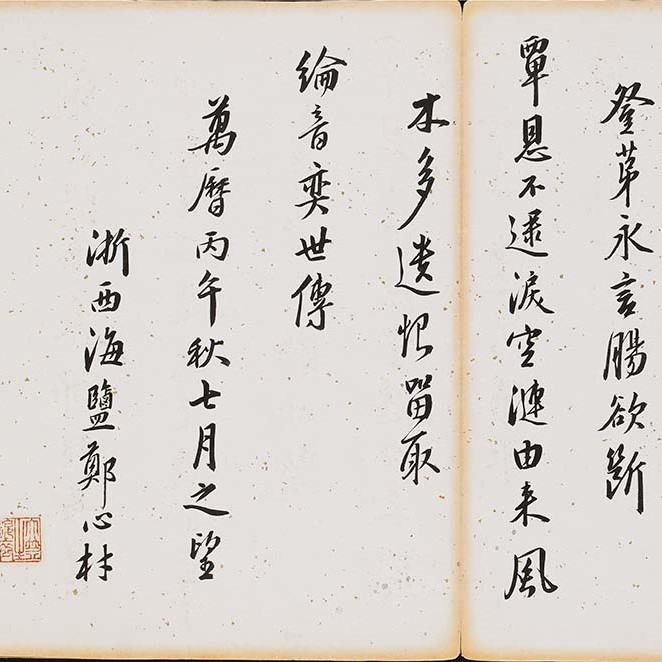 登第永言腸欲斷
覃恩不逮淚空漣由来風
木多遺恨留取
綸音奕世傳
萬曆丙午秋七月之望
浙西海鹽鄭心材